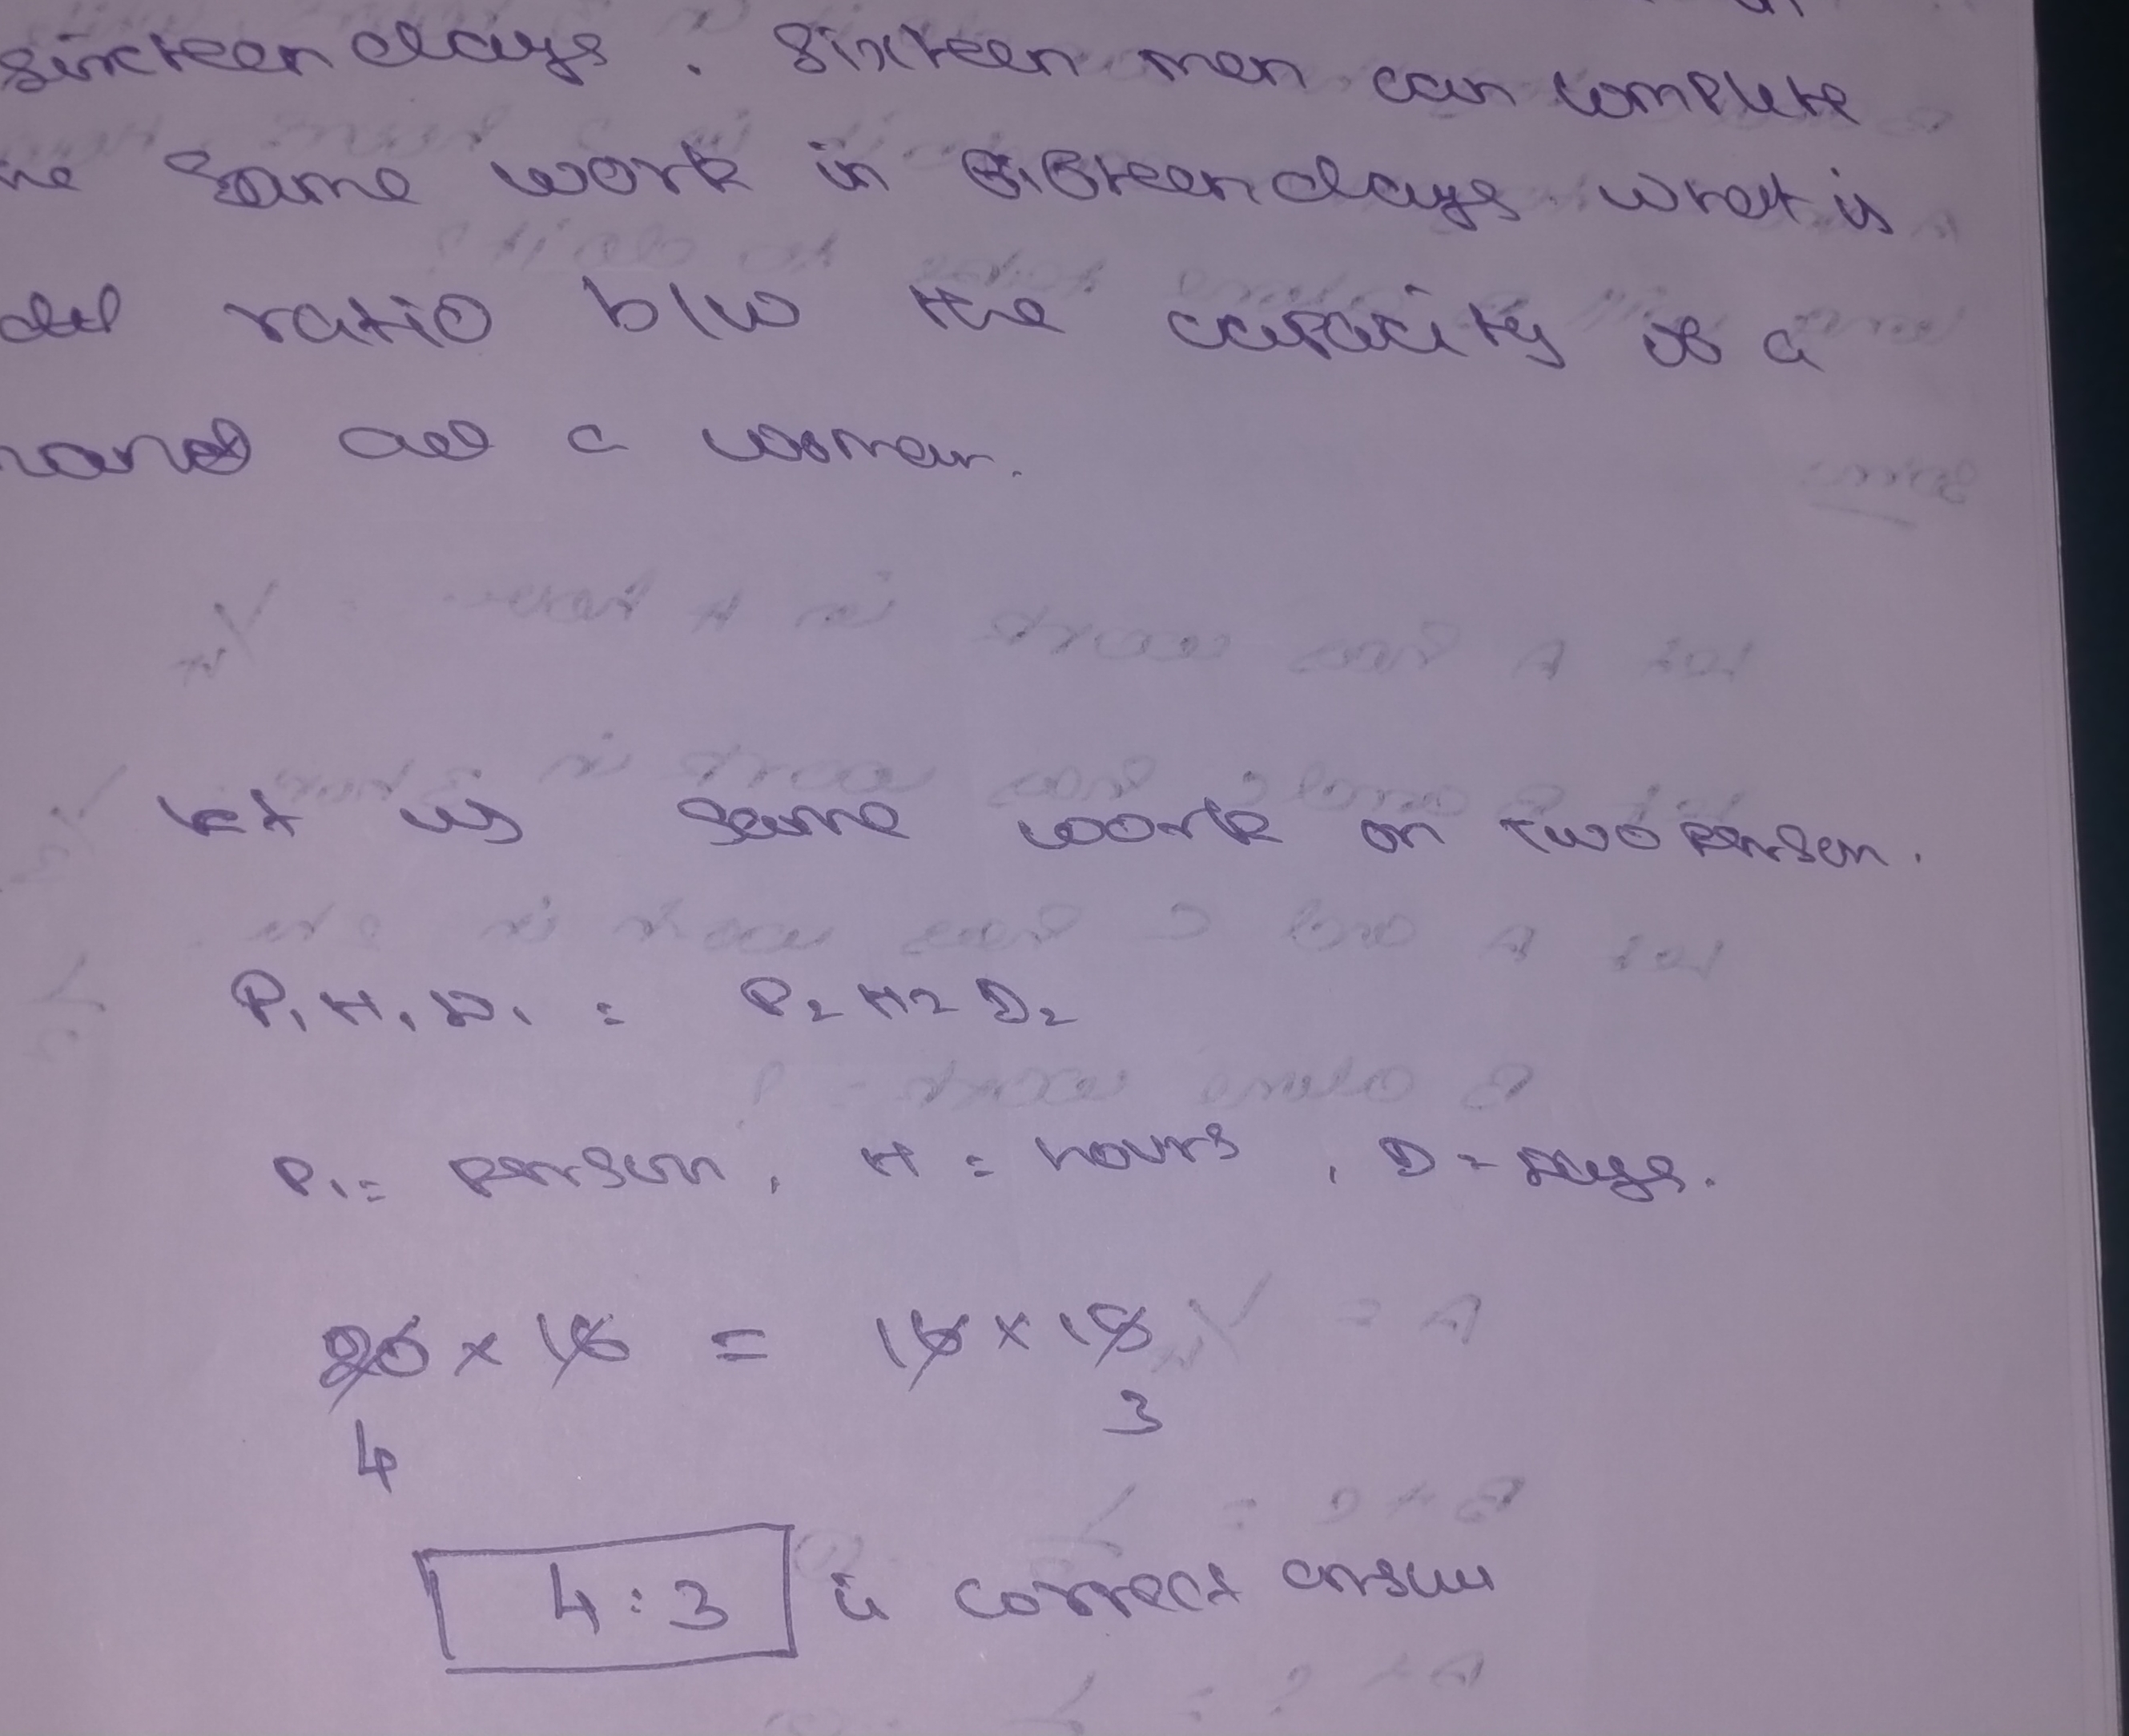 sixteen days. Sixteen men can complete
he same work in fifteen days. what is
ratio b/w the capacity of a
a women.
Let us same work on two person.
P₁ H₁ D₁ = P₂ H2 D₂
P₁ = person, H = hours, D = Days.
20 × 16 = 16 × 15
4 3
4:3 is correct answer